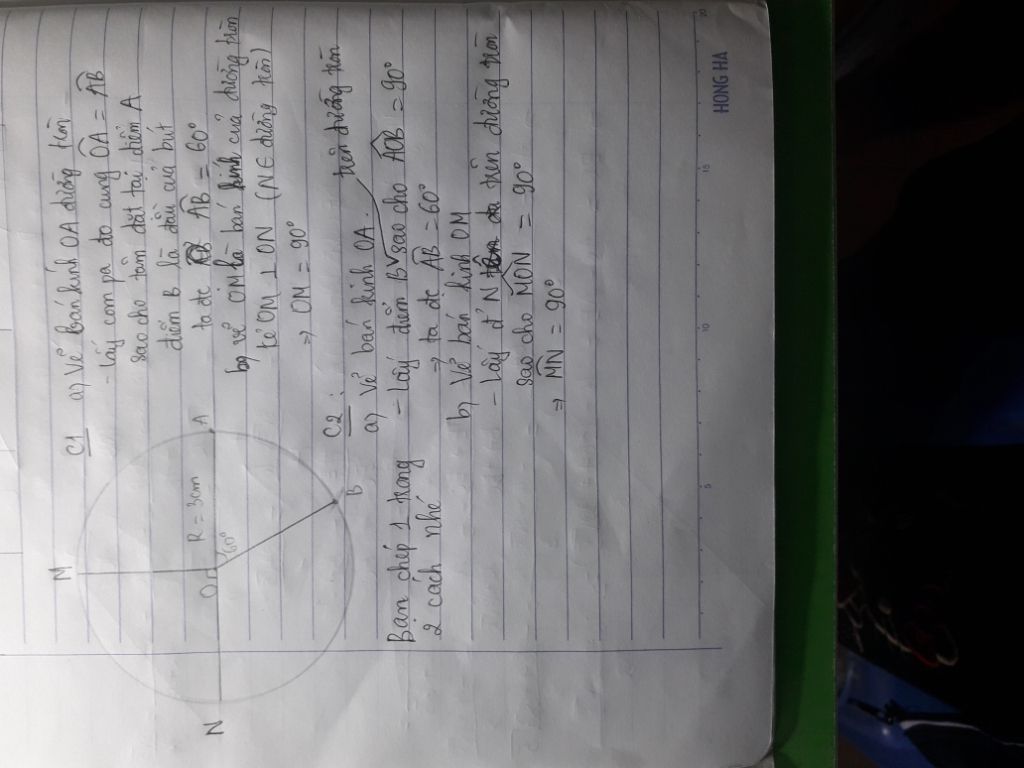 C1 a) Vẽ bán kính OA đường tròn
- Lấy compa đo cung OA = AB
sao cho tâm đặt tại điểm A
điểm B là đầu của bút
ta đc AB = 60°
b) vẽ OM là bán kính của đường tròn
kẻ OM ⊥ ON (N ∈ đường tròn)
⇒ OM = 90°
C2:
a) Vẽ bán kính OA. trên đường tròn
- Lấy điểm B sao cho AOB = 90°
⇒ ta đc AB = 60°
b) Vẽ bán kính OM
- Lấy đ' N trên đường tròn
sao cho MON = 90°
⇒ MN = 90°
M
N
O
R = 3cm
60°
A
B
Bạn chép 1 trong
2 cách nhé
5
10
15
20
HONG HA